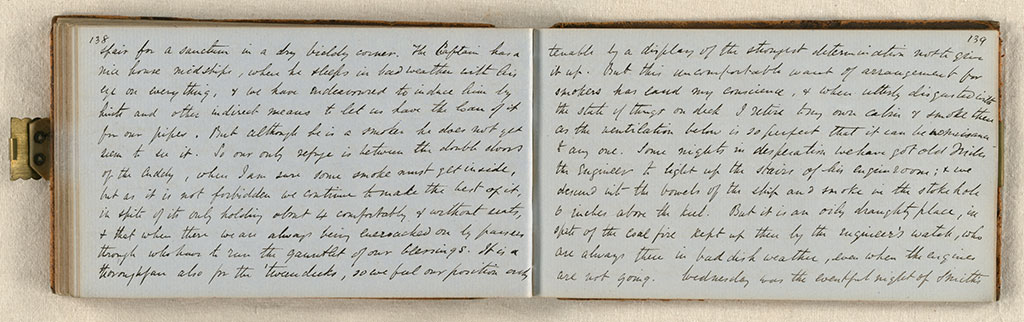 138
spair for a sanctum in a dry cuddy corner. The Captain has a
nice house midships, where he sleeps in bad weather with his
eye on everything, & we have endeavoured to induce him by
hints and other indirect means to let us have the loan of it
for our pipes. But although he is a smoker he does not yet
seem to see it. So our only refuge is between the double doors
of the Cuddy, when I am sure some smoke must get inside,
but as it is not forbidden we continue to make the best of it,
in spite of its only holding about 4 comfortably & without seats,
& that when there we are always being encroached on by passers
through who have to run the gauntlet of our blessings. It is a
thoroughfare also for the tween decks, so we feel our position only
139
tenable by a display of the strongest determination not to give
it up. But this uncomfortable want of arrangement for
smokers has eased my conscience, & when utterly disgusted with
the state of things on deck I retire to my own cabin & smoke there
as the ventilation below is so perfect that it can be no nuisance
to any one. Some nights in desperation we have got old
the Engineer to light up the stairs of his engine room; & we
descend into the bowels of the ship and smoke in the stokehole
6 inches above the keel. But it is an oily draughty place, in
spite of the coal fire kept up there by the engineer's watch, who
are always there in baddish weather, even when the engines
are not going. Wednesday was the eventful night of Smith's